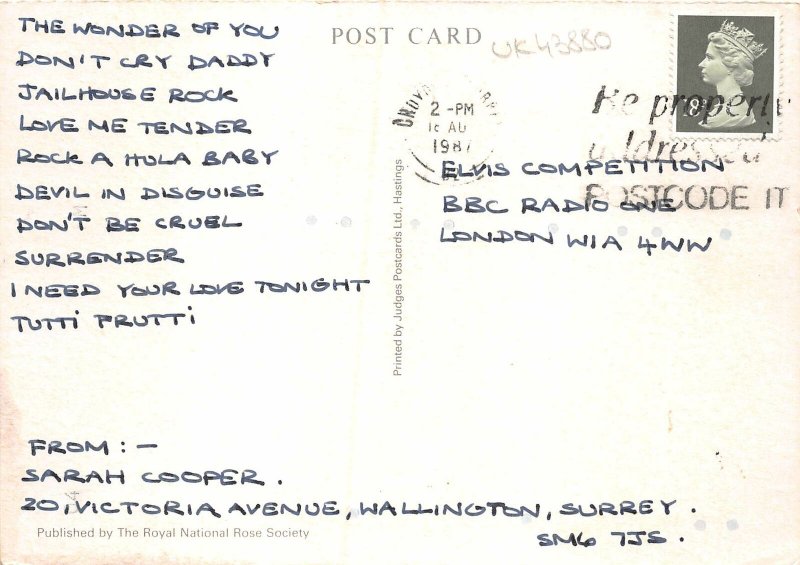 THE WONDER OF YOU
DON'T CRY DADDY
JAILHOUSE ROCK
LOVE ME TENDER
ROCK A HULA BABY
DEVIL IN DISGUISE
DON'T BE CRUEL
SURRENDER
I NEED YOUR LOVE TONIGHT
TUTTI FRUTTI
FROM : -
SARAH COOPER .
20, VICTORIA AVENUE, WALLINGTON, SURREY .
SM6 7JS .
Published by The Royal National Rose Society
POST CARD
UK43880
Printed by Judges Postcards Ltd., Hastings
2 - PM
AU
1987
Be properly
addressed
POSTCODE IT
ELVIS COMPETITION
BBC RADIO ONE
LONDON W1A 4WW